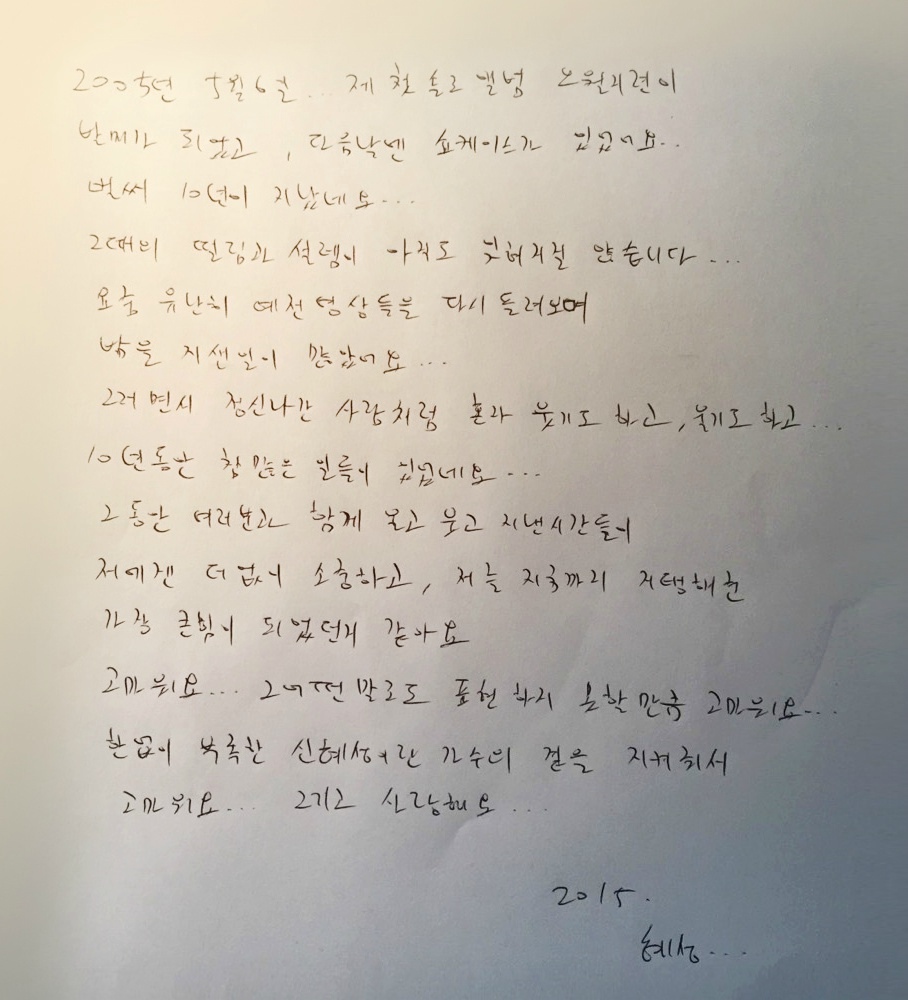 2005년 5월 6일... 제 첫 솔로앨범 오월지련이
발매가 되었고, 다음날엔 쇼케이스가 있었어요..
벌써 10년이 지났네요...
그때의 떨림과 설렘이 아직도 잊혀지질 않습니다...
요즘 유난히 예전영상들을 다시 돌려보며
밤을 지샌일이 많았어요...
그러면서 정신나간 사람처럼 혼자 웃기도 하고, 울기도 하고...
10년동안 참 많은 일들이 있었네요...
그동안 여러분과 함께 울고 웃고 지낸시간들이
저에겐 더없이 소중하고, 저를 지금까지 지탱해준
가장 큰힘이 되었던거 같아요
고마워요... 그 어떤 말로도 표현하지 못할만큼 고마워요...
한없이 부족한 신혜성이란 가수의 곁을 지켜줘서
고마워요... 그리고 사랑해요...
2015.
혜성...